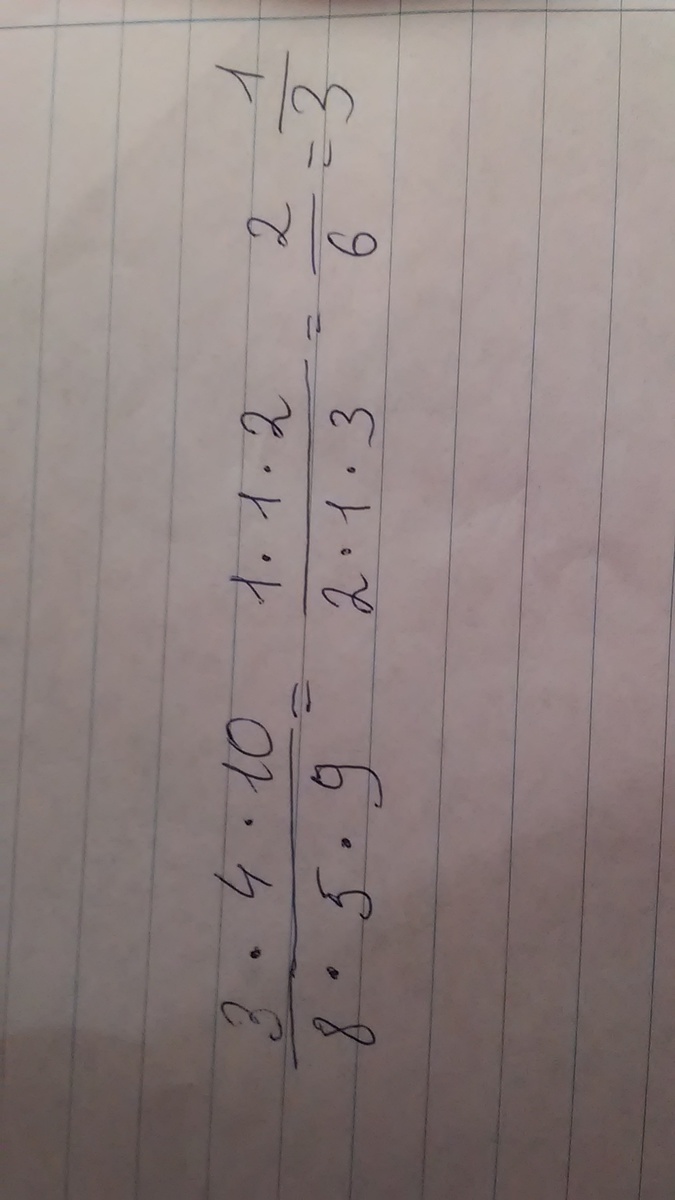 3 · 4 · 10 / 8 · 5 · 9 = 1 · 1 · 2 / 2 · 1 · 3 = 2 / 6 = 1 / 3